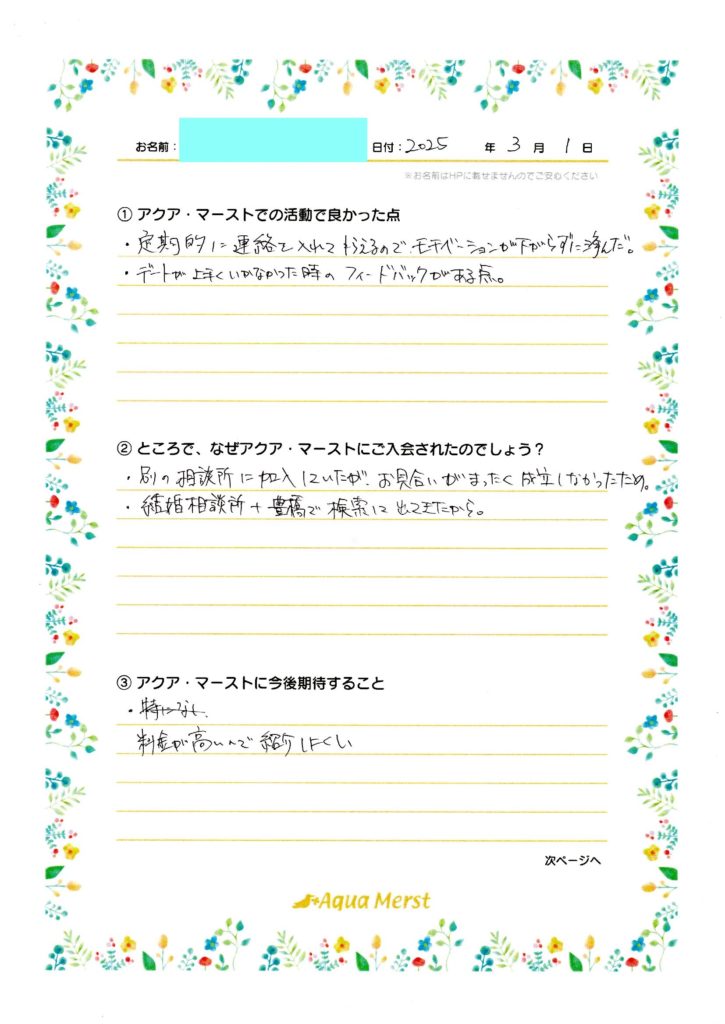 お名前： 日付：2025 年 3 月 1 日
※お名前はHPに載せませんのでご安心ください
① アクア・マーストでの活動で良かった点
・定期的に連絡を入れてもらえるので、モチベーションが下がらずに済んだ。
・デートが上手くいかなかった時のフィードバックがある点。
② ところで、なぜアクア・マーストにご入会されたのでしょう？
・別の相談所に加入していたが、お見合いがまったく成立しなかったため。
・結婚相談所＋豊橋で検索して出てきたから。
③ アクア・マーストに今後期待すること
・特になし。
料金が高いので紹介しにくい
次ページへ
Aqua Merst